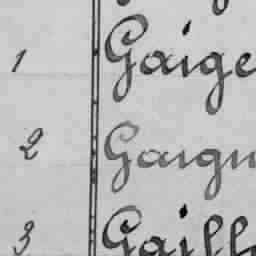 1 Gaige
2 Gaign
3 Gaill